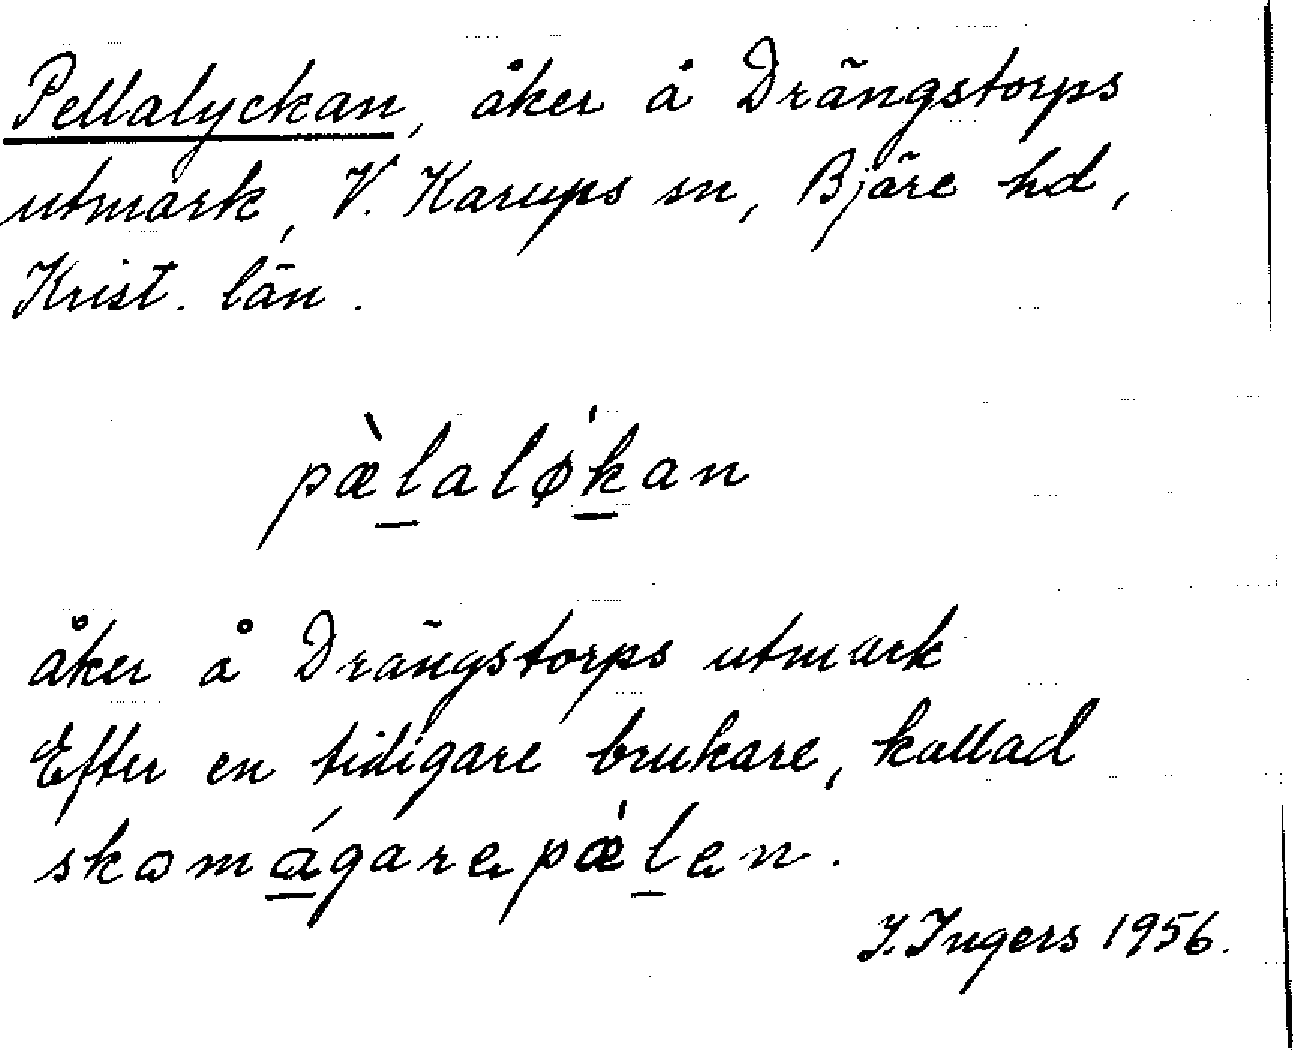 Pellalyckan, åker å Drängstorps
utmark, V. Karups sn, Bjäre hd,
Krist. län.
pæ̀l̲aløḱ̲an
åker å Drängstorps utmark
Efter en tidigare brukare, kallad
skomá̲garepæ̀l̲en.
I. Ingers 1956.